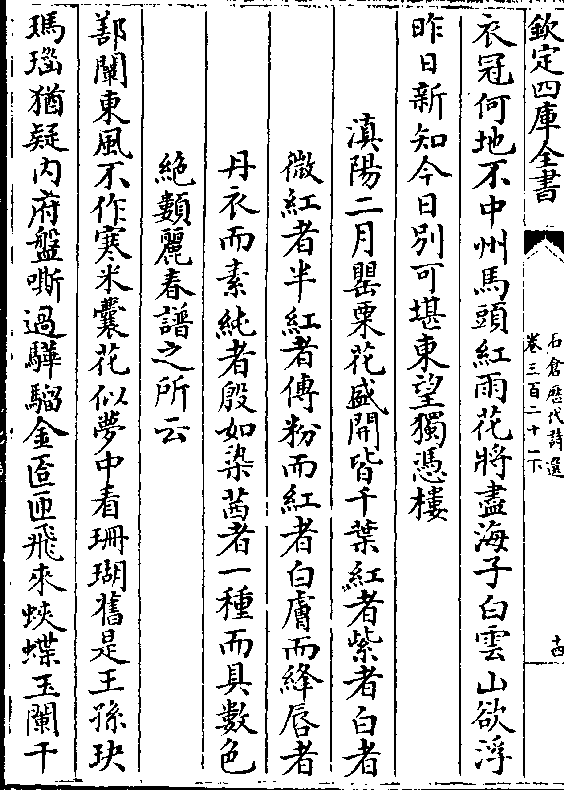 欽定四庫全書
石倉歴代詩選
卷三百二十一下
十四
衣冠何地不中州馬頭紅雨花將盡海子白雲山欲浮
昨日新知今日别可堪東望獨憑樓
滇陽二月罌粟花盛開皆千葉紅者紫者白者
微紅者半紅者傅粉而紅者白膚而絳唇者
丹衣而素純者殷如染茜者一種而具數色
絶類麗春譜之所云
鄯闡東風不作寒米囊花似夢中看珊瑚舊是王孫玦
瑪瑙猶疑内府盤嘶過驊騮金匼匝飛來蛺蝶玉闌干